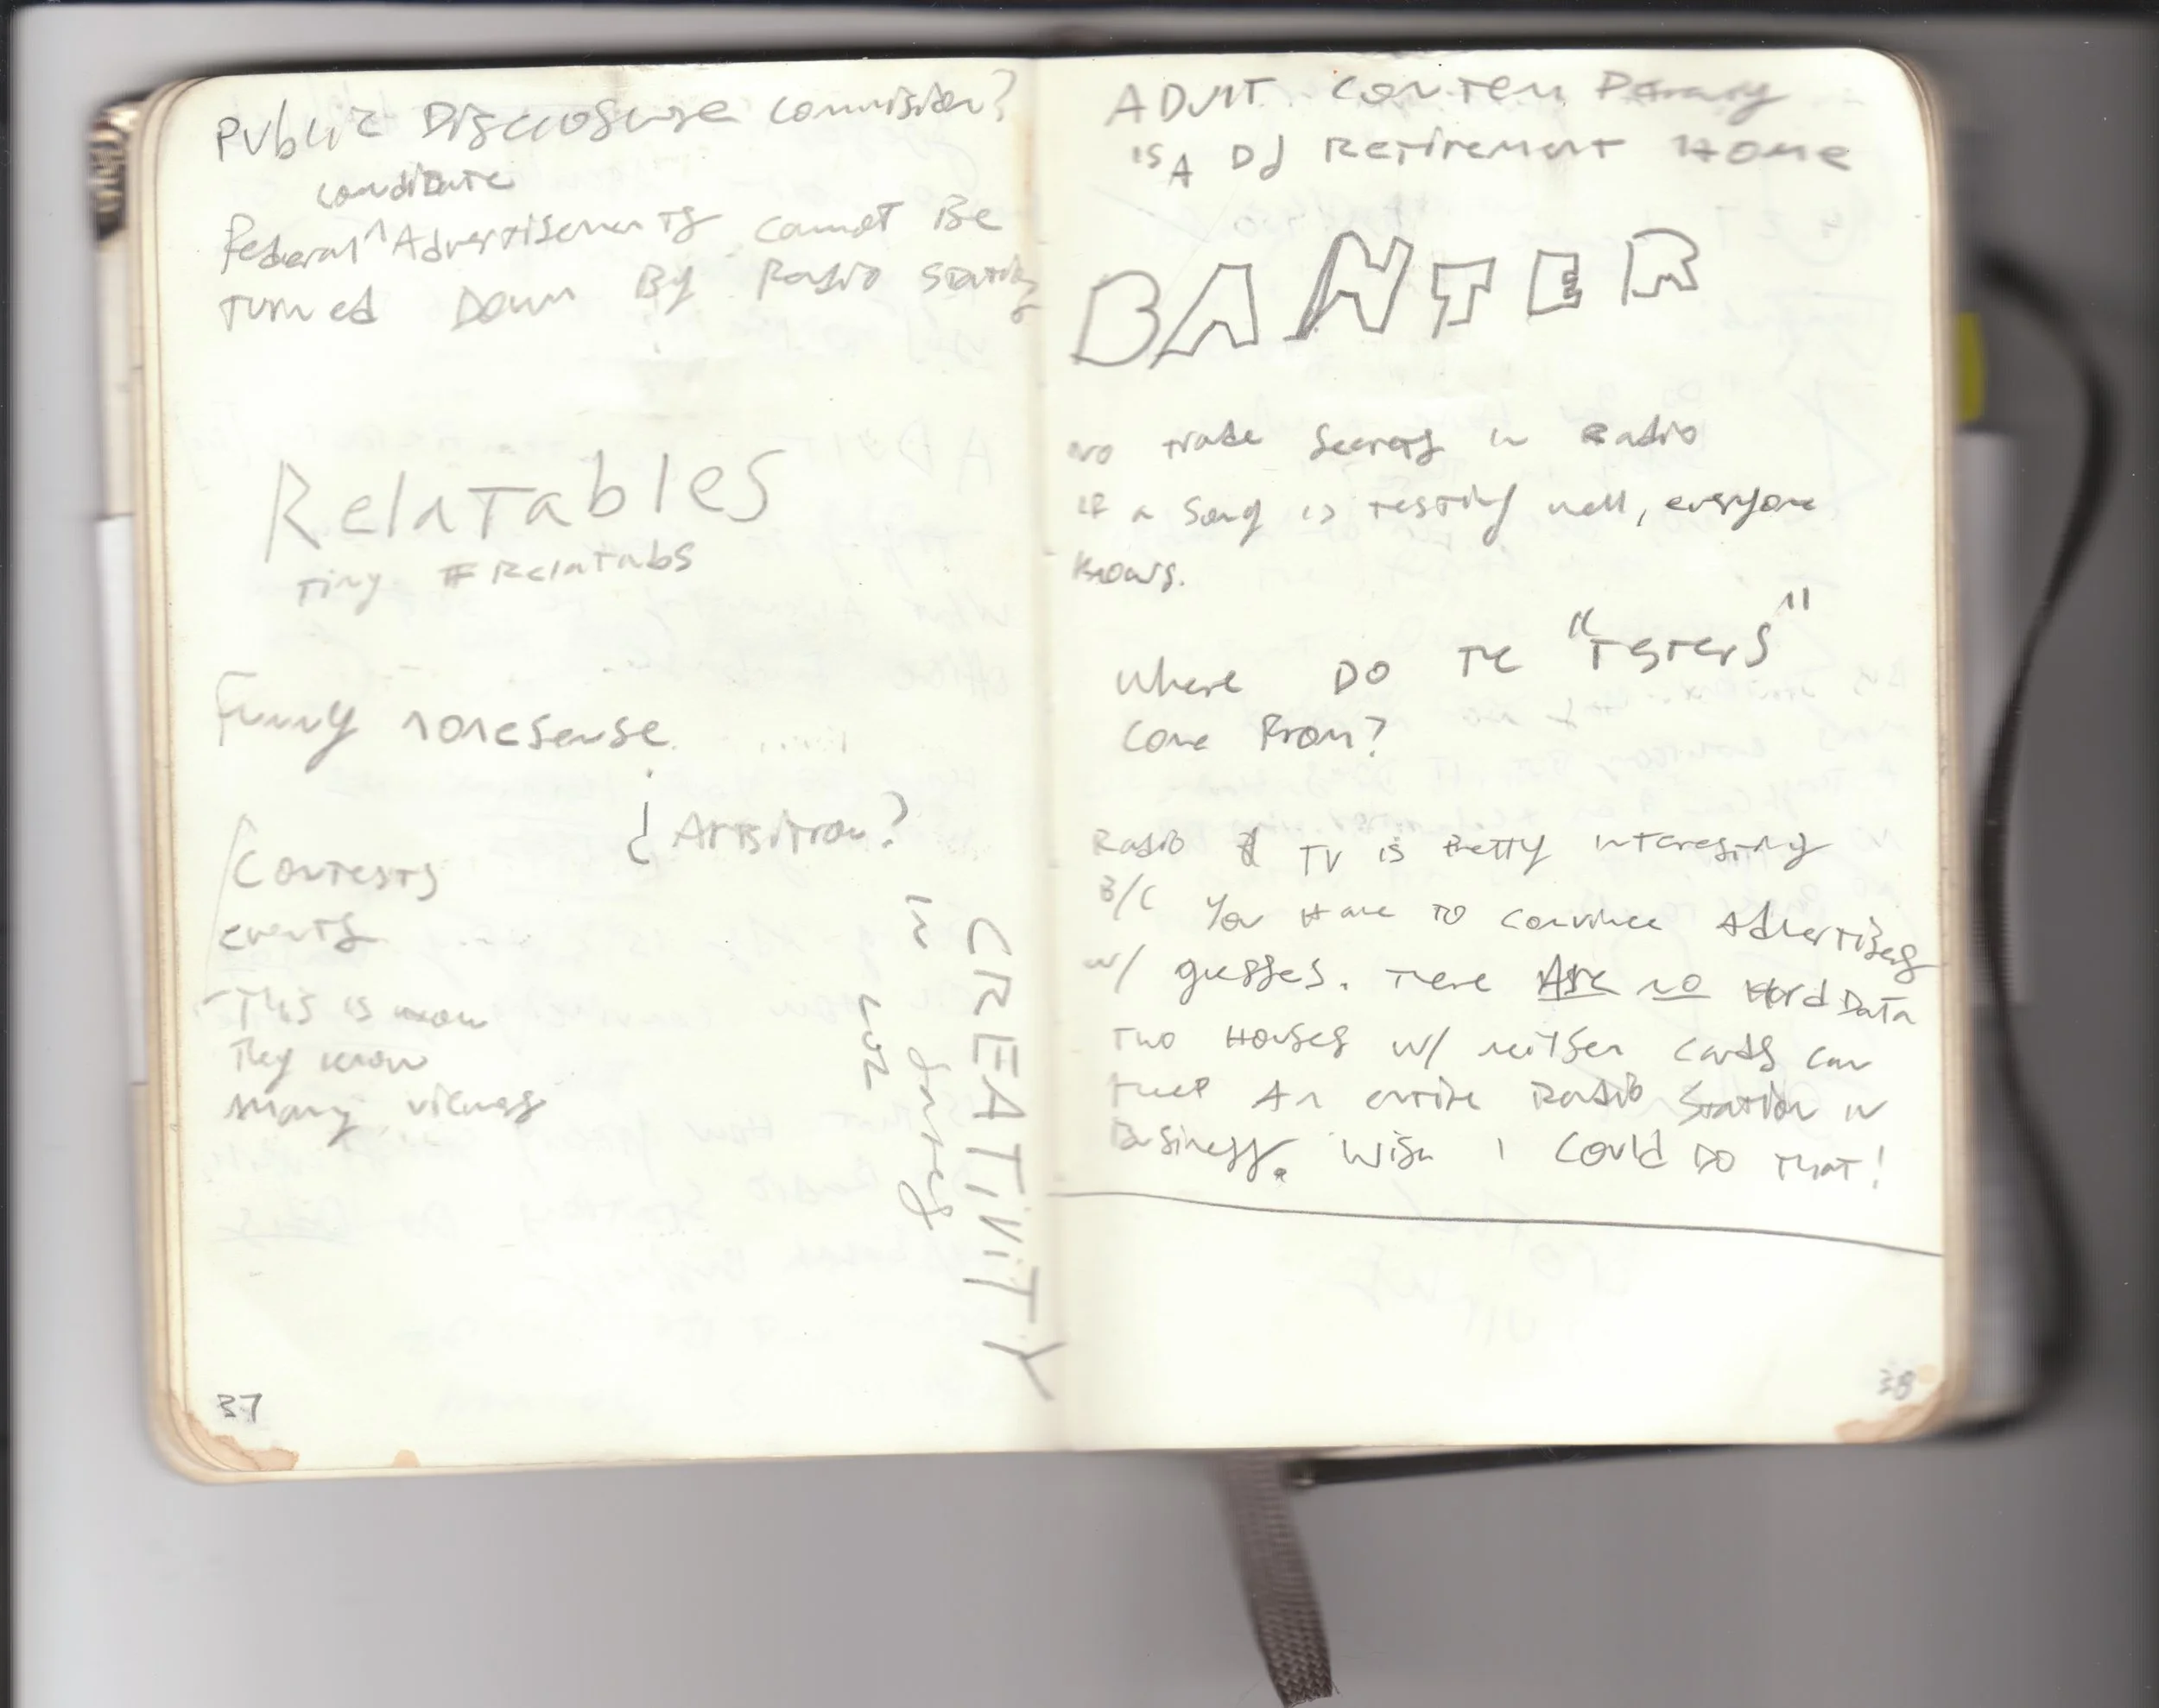 Public Disclosure Commision?
candidate
Federal ^ Advertisements cannot Be
turned Down By Radio Stations
Relatables
Tiny #Relatabs
Funny nonesense
¿ Arbitron?
Contests
events
This is how
They know
many views
CREATIVITY
in
ADULT Contemporary
is A DJ Retirement Home
BANTER
No trade secrets in Radio
IF a song is testing well, everyone
knows.
Where DO The "Testers"
Come From?
Radio & TV is Pretty interesting
B/C You Have to convince Advertisers
w/ guesses. There Are no Hard Data
Two Houses w/ neilsen cards can
keep An entire Radio Station in
Business. Wish I Could Do That!
37
38